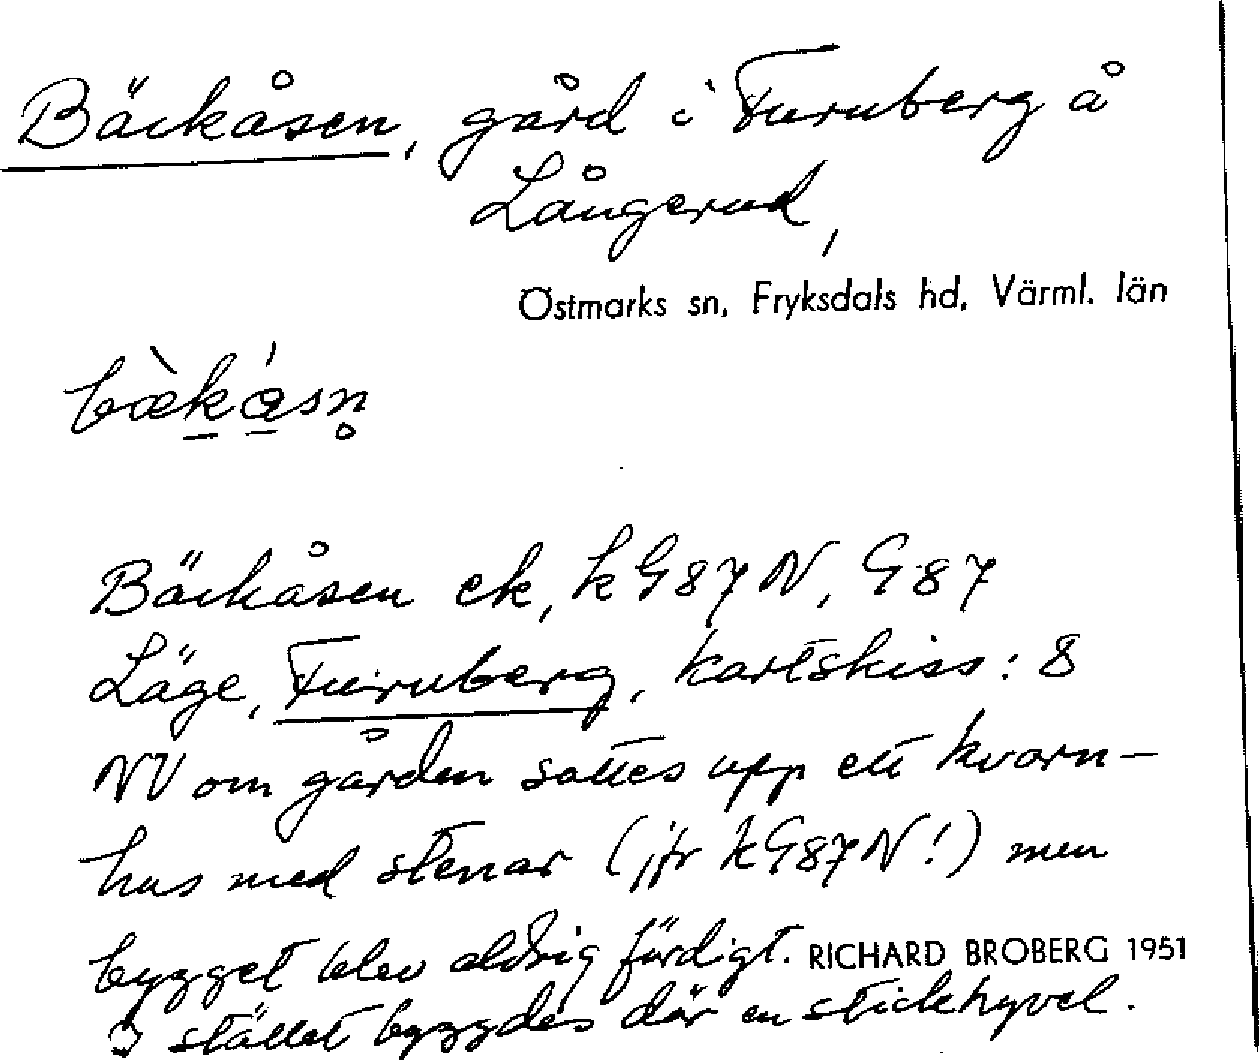 Bäckåsen, gård i Furuberg å
Långerud,
Östmarks sn, Fryksdals hd, Värml. län
bæ̀kǻsn̥
Bäckåsen ek, k G87N, G87
Läge, Furuberg, kartskiss: 8
NV om gården sattes upp ett kvarn-
hus med stenar (jfr k G87N!) men
bygget blev aldrig färdigt. RICHARD BROBERG 1951
I stället byggdes där en stickhyvel.